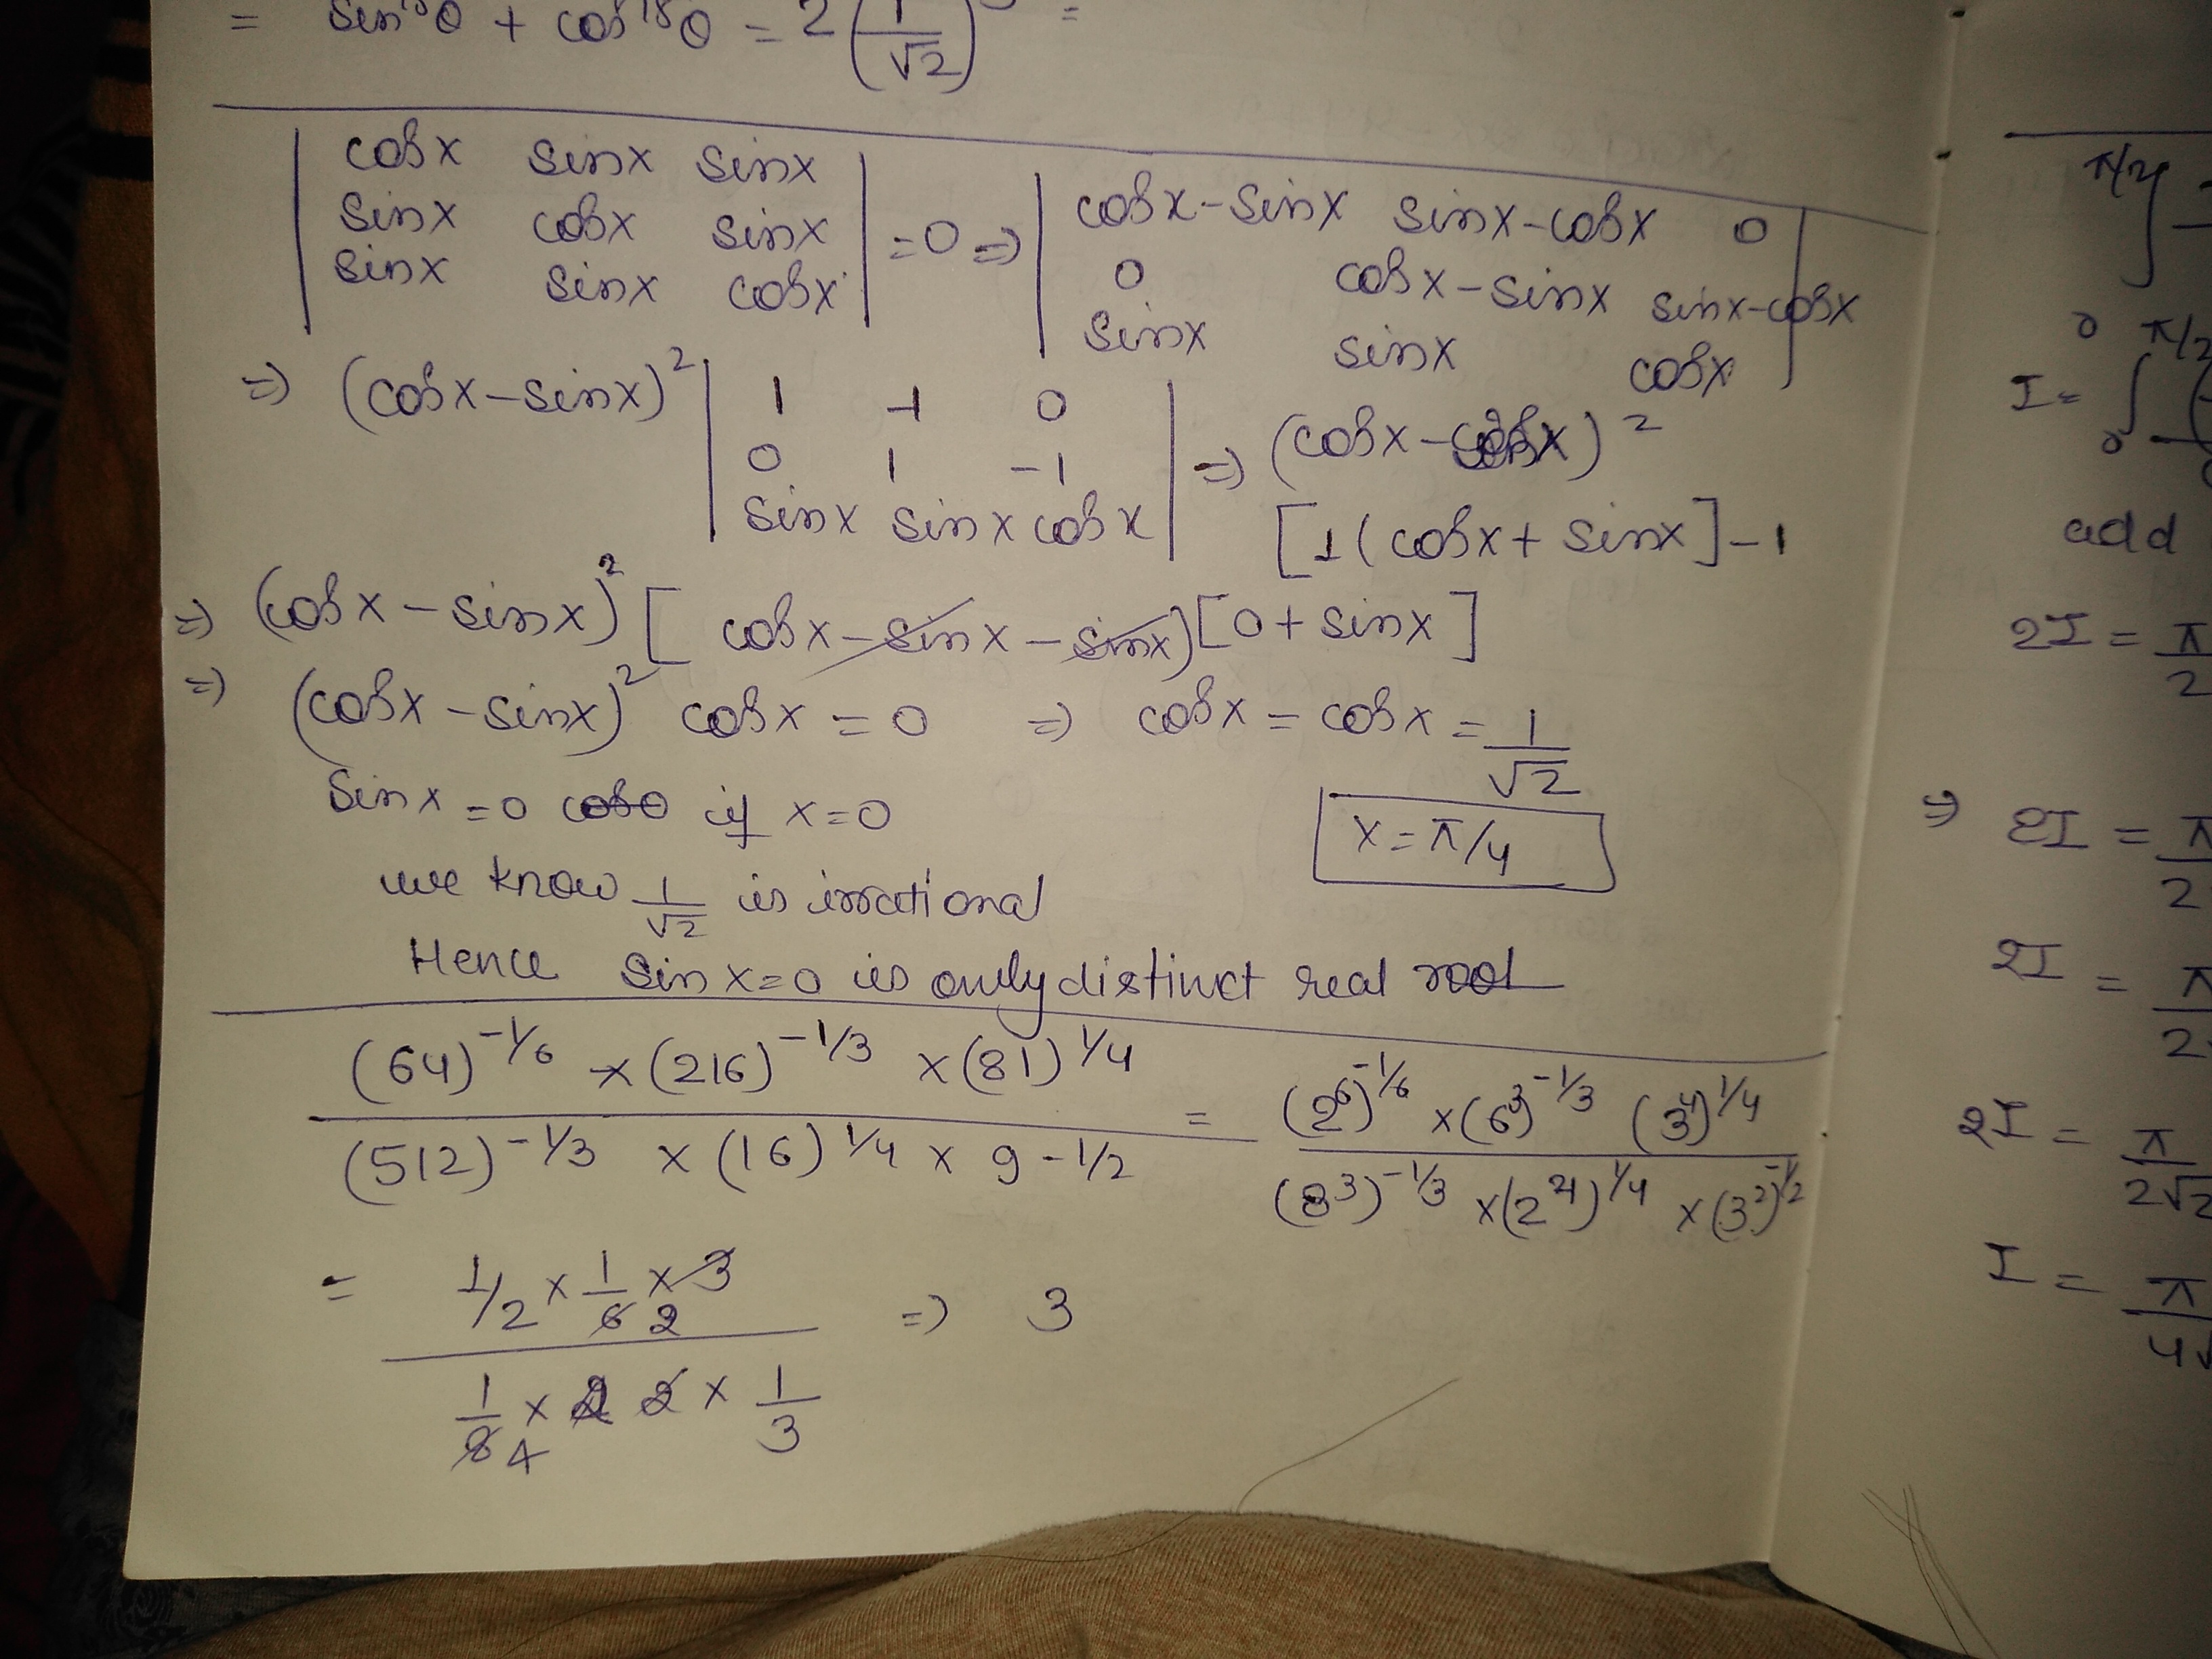 = sin¹⁸θ + cos¹⁸θ = 2(1/√2) =
| cosx sinx sinx |
| sinx cosx sinx | = 0 ⇒ | cosx-sinx sinx-cosx 0 |
| sinx sinx cosx | | 0 cosx-sinx sinx-cosx |
| sinx sinx cosx |
⇒ (cosx-sinx)² | 1 -1 0 |
| 0 1 -1 | ⇒ (cosx- )²
| sinx sinx cosx | [1(cosx+sinx]-1
⇒ (cosx-sinx)² [cosx-sinx-sinx)[0+sinx]
⇒ (cosx-sinx)² cosx = 0 ⇒ cosx = cosx = 1/√2
sinx=0 cos0 if x=0
x=π/4
we know 1/√2 is irrational
Hence sinx=0 is only distinct real root
(64)^-1/6 × (216)^-1/3 × (81)^1/4 / (512)^-1/3 × (16)^1/4 × 9-1/2 = (2⁶)^-1/6 × (6³)^-1/3 (3⁴)^1/4 / (8³)^-1/3 × (2⁴)^1/4 × (3²)^-1/2
= 1/2 × 1/6 2 × 3 / 1/8 4 × 2 × 1/3 ⇒ 3
π/2
0
π/2
I = ∫
0
add
2I = π/2
⇒ 2I = π/2
2I = π/2
2I = π/2√2
I = π/4√